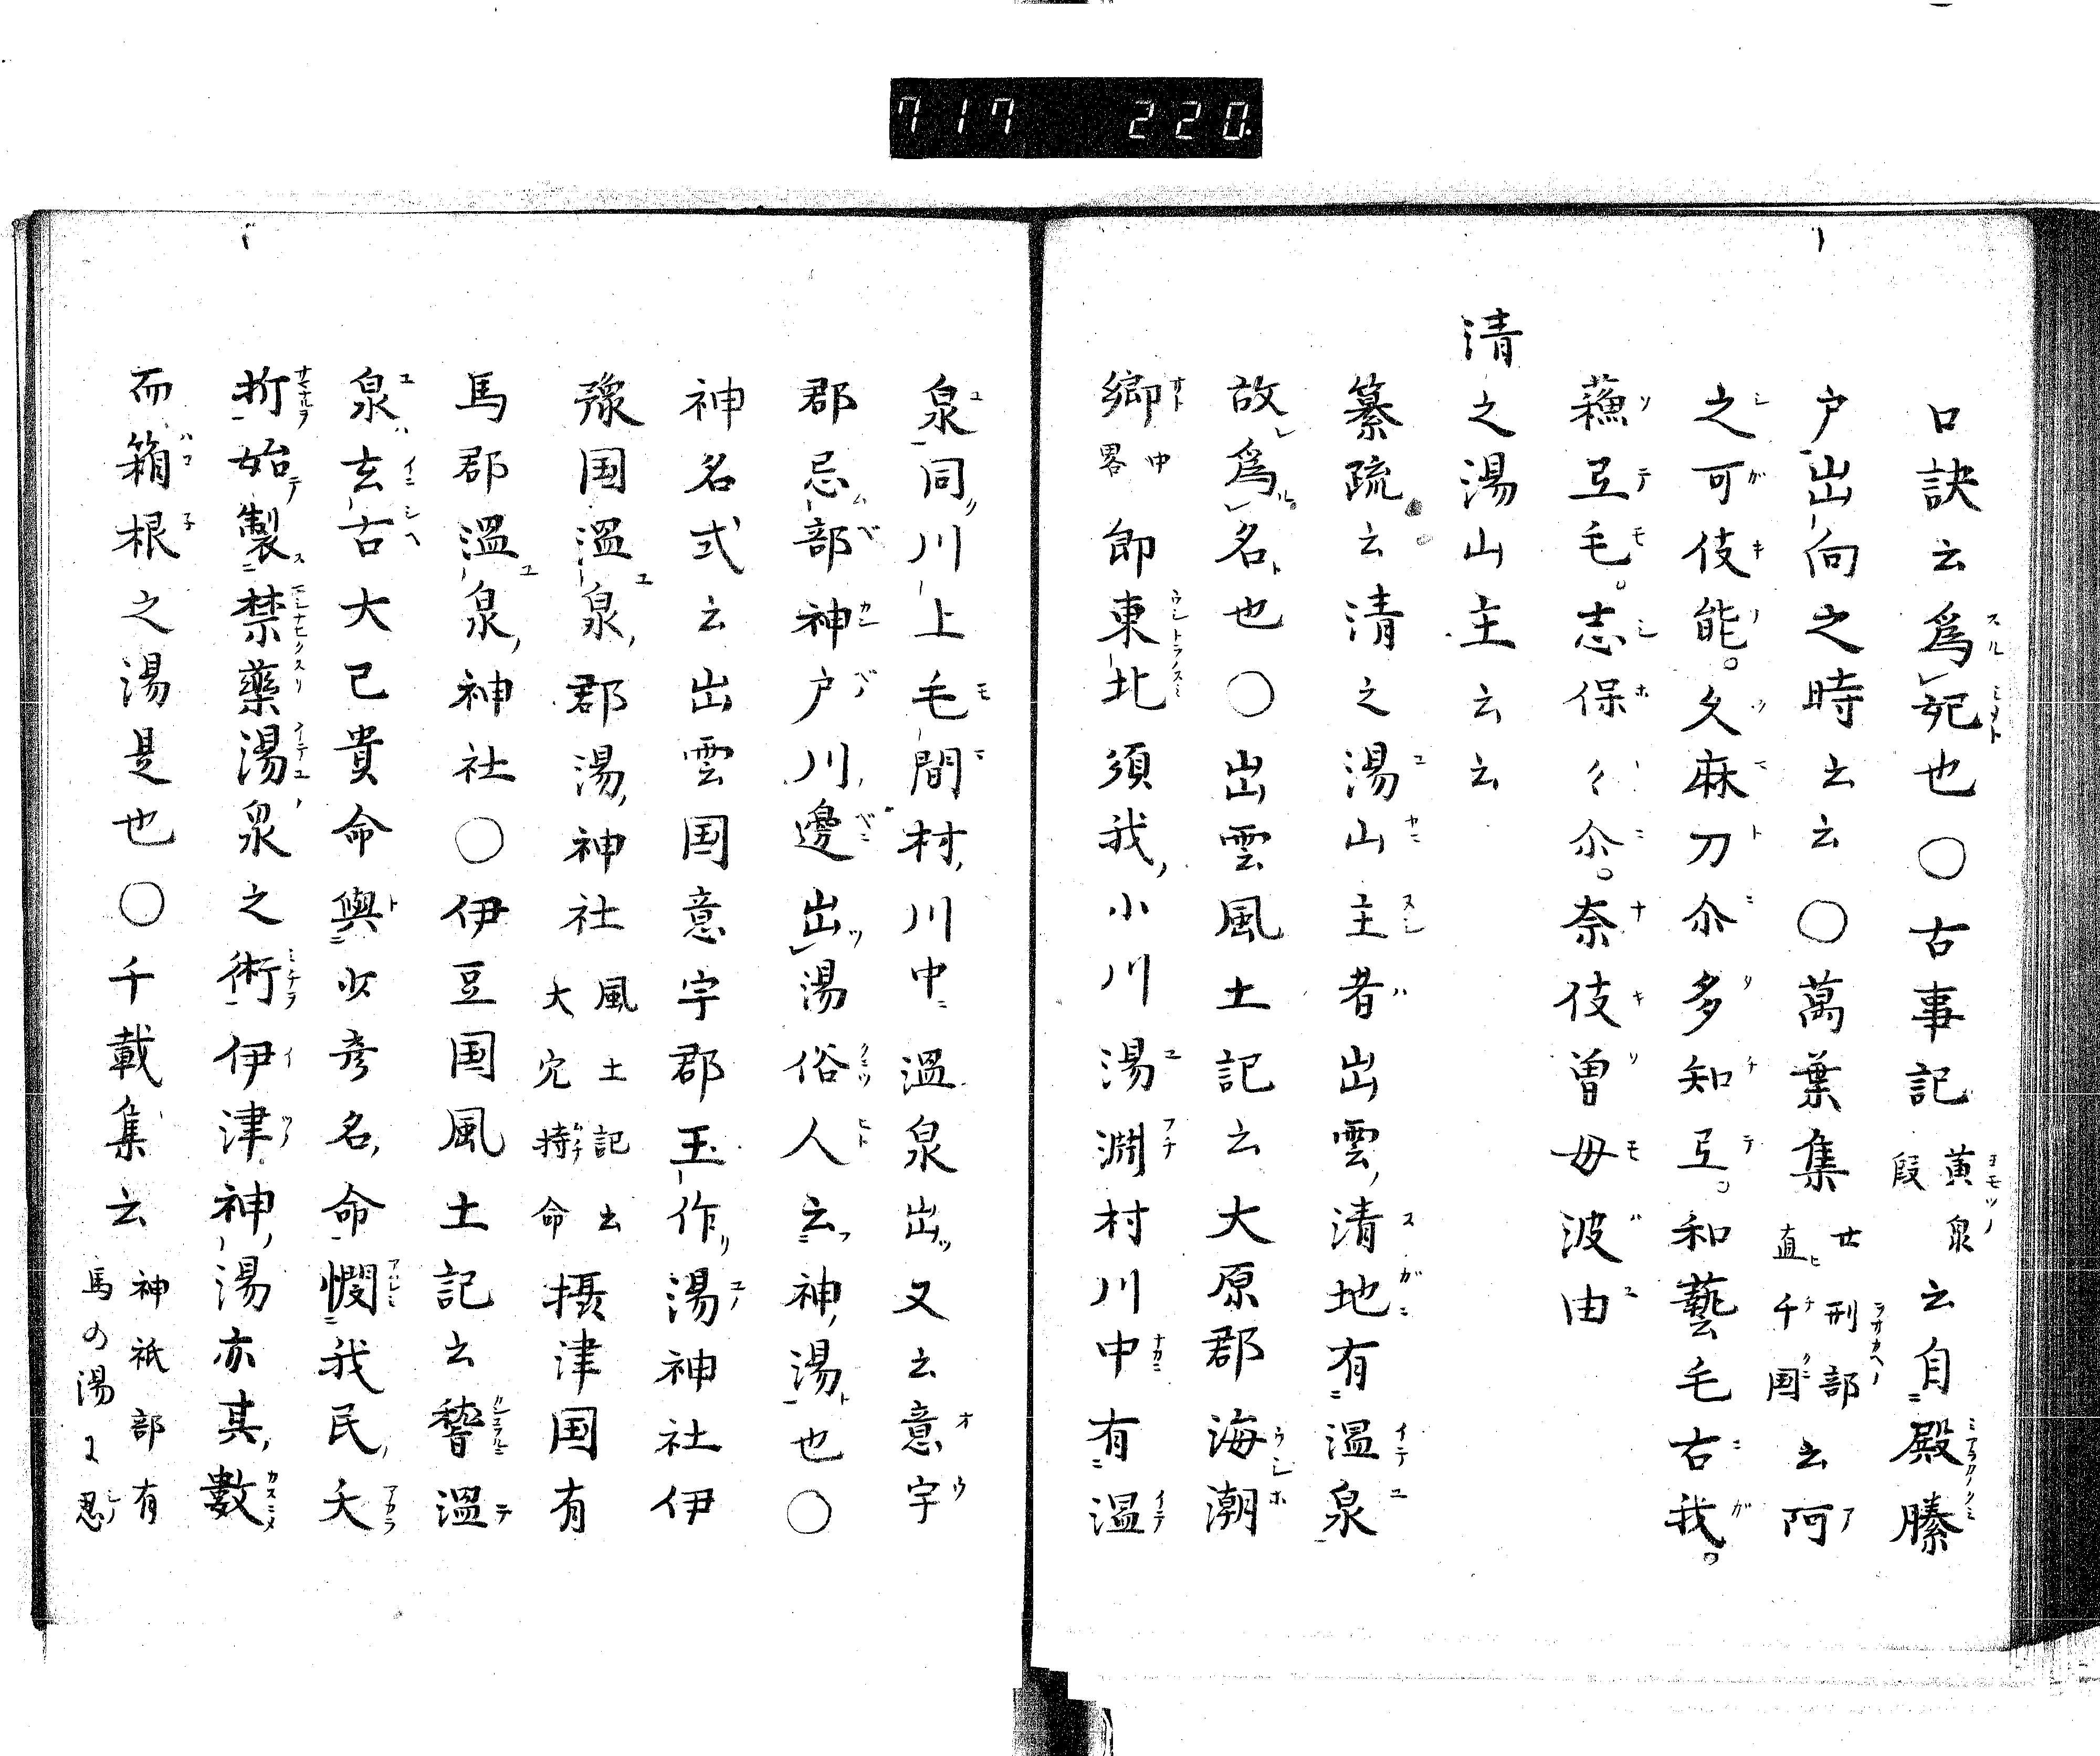 717 220.
口訣云爲妃也〇古事記黄泉段云自殿縢
戸出向之時云云〇萬葉集廿刑部直千国云阿
之可伎能久麻刀尒多知弖和藝毛古我
蘓弖毛志保々尒奈伎曽毋波由
清之湯山主云云
纂疏云清之湯山主者出雲清地有温泉
故爲名也〇出雲風土記云大原郡海潮
郷中畧即東北須我小川湯淵村川中有温
泉同川上毛間村川中温泉出又云意宇
郡忌部神戸川邊出湯俗人云神湯也〇
神名式云出雲国意宇郡玉作湯神社伊
豫国温泉郡湯神社風土記云大穴持命摂津国有
馬郡温泉神社〇伊豆国風土記云稽温
泉玄古大己貴命與少彦名命憫我民夭
折始製禁藥湯泉之術伊津神湯亦其數
而箱根之湯是也〇千載集云神祇部有馬の湯に忍